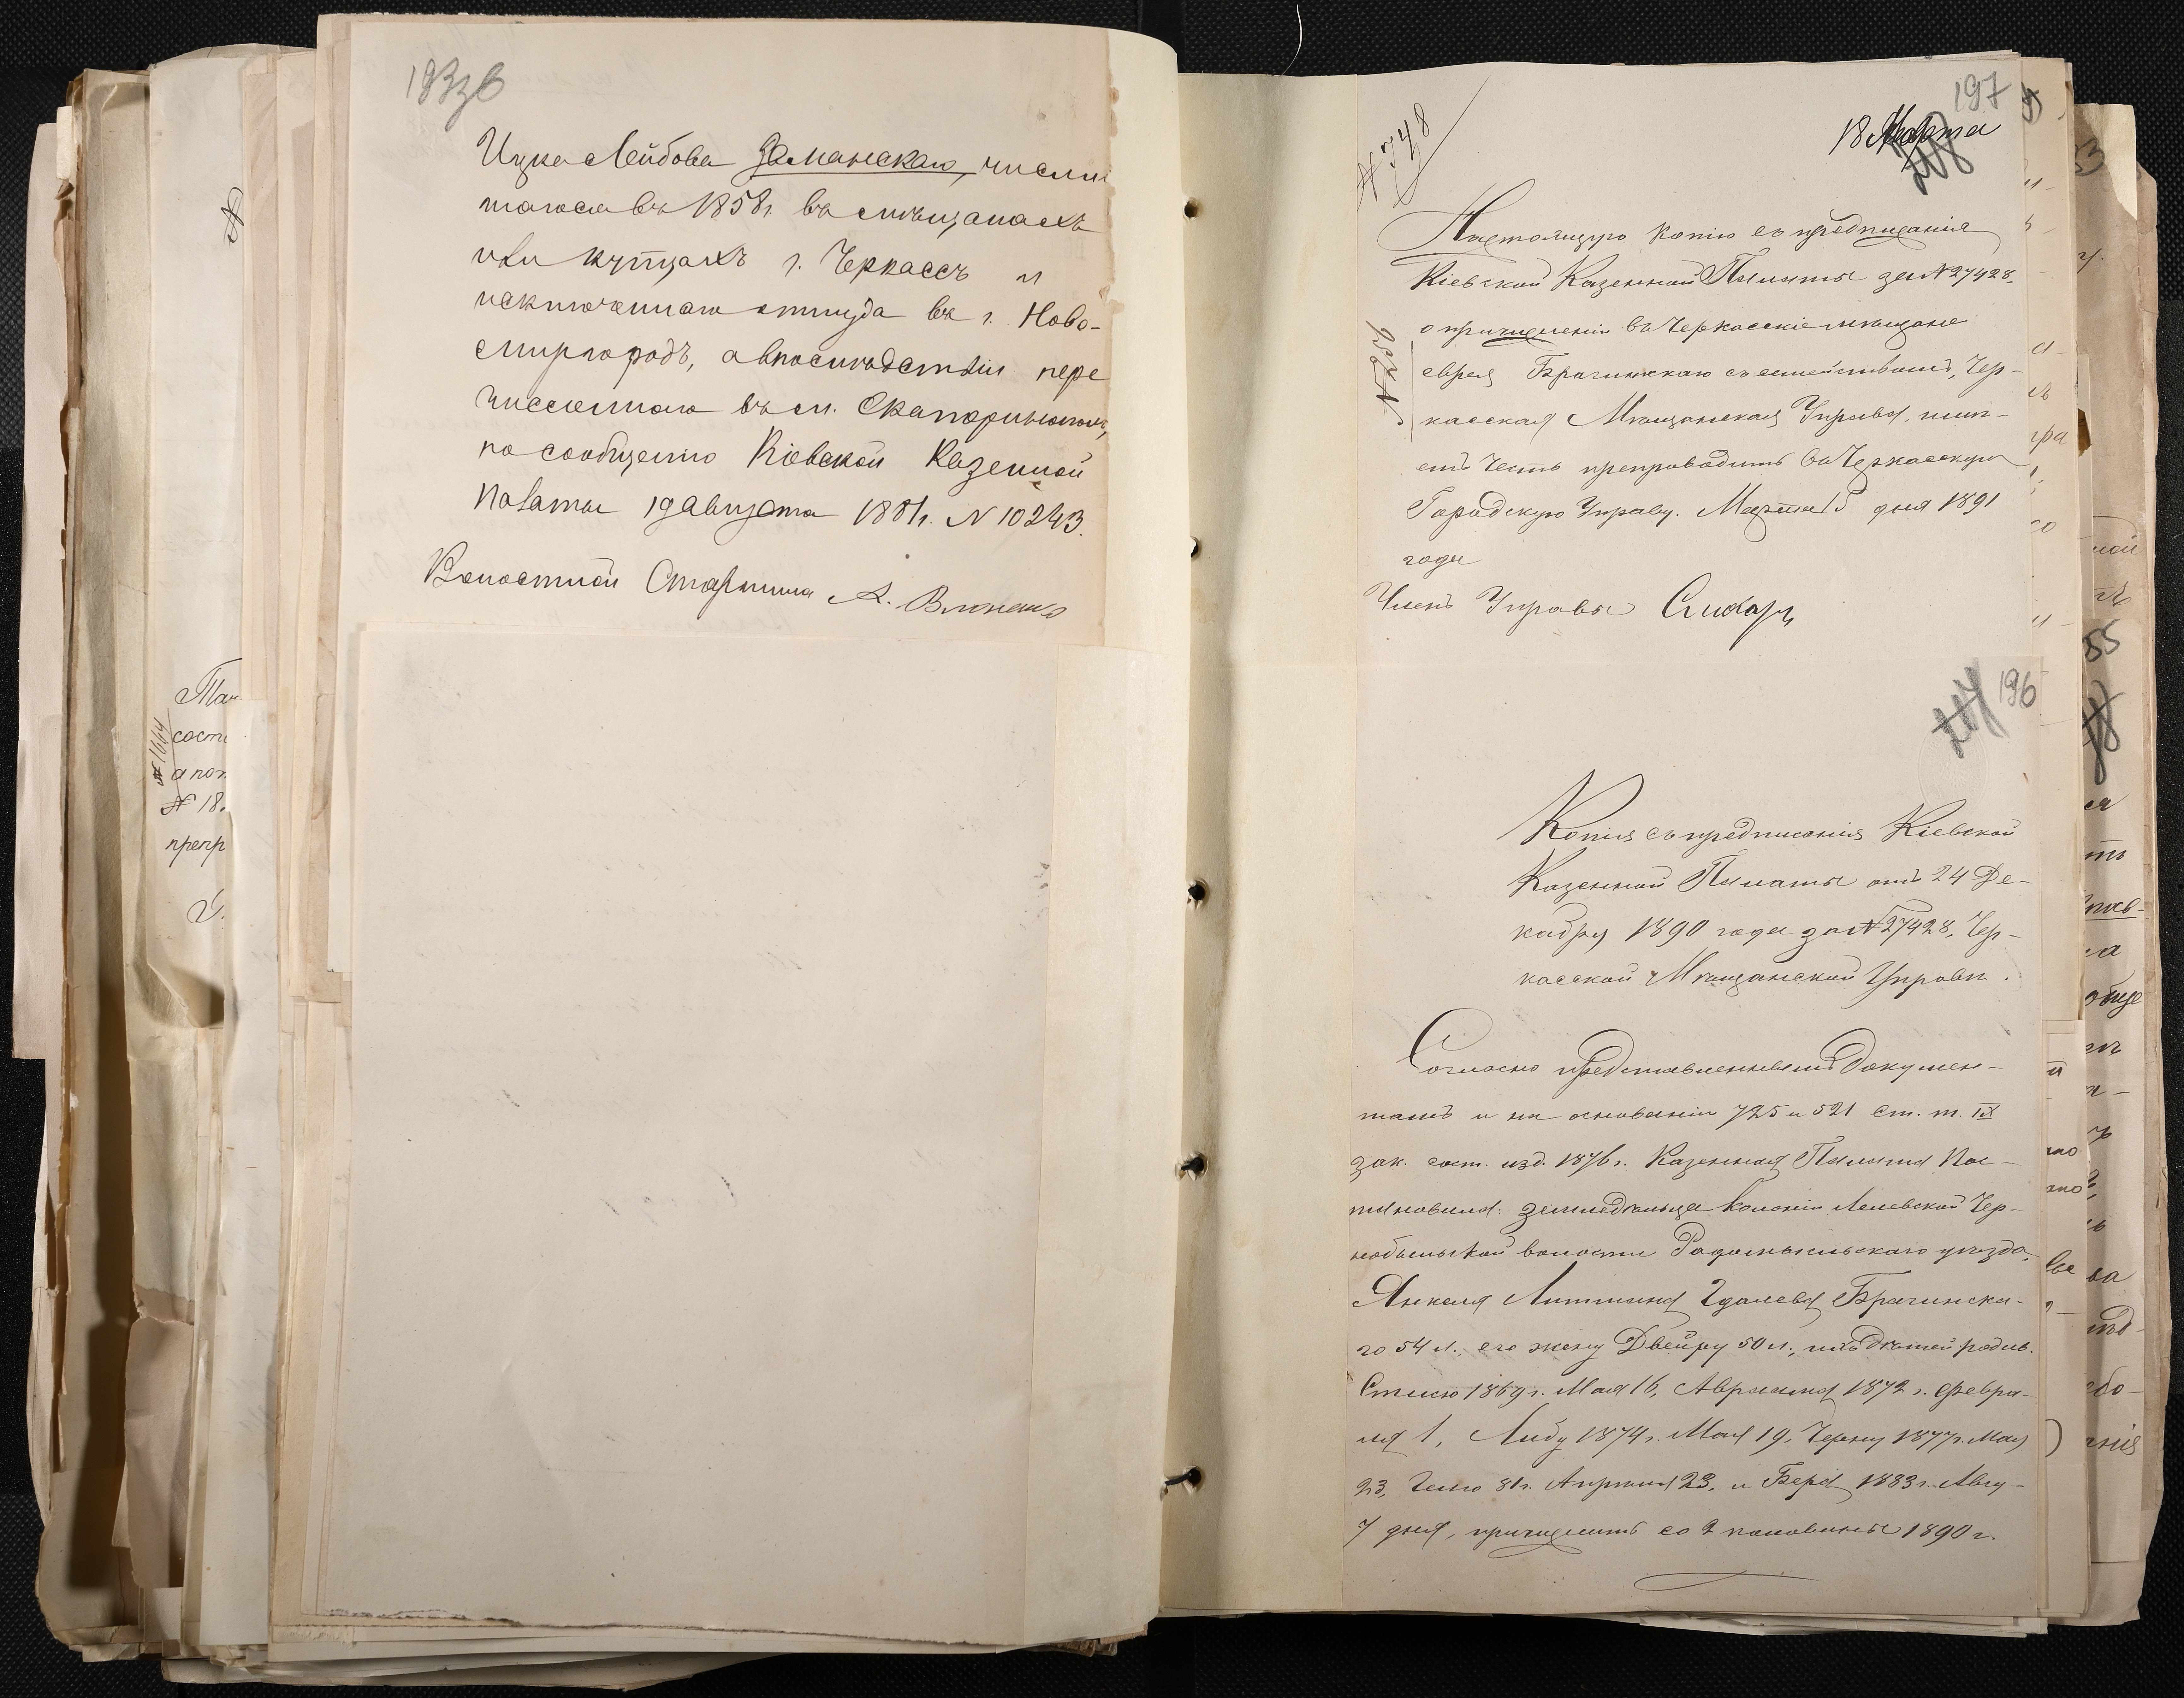 193зв
Ицка Лейбова Заманскаго, числив
шагося въ 1858 г. въ мѣщанахъ
или купцахъ г. Черкассъ и
исключеннаго оттуда въ г. Ново-
миргородъ, а впослѣдствіи пере
численнаго въ м. Екатеринополь,
по сообщенію Кіевской Казенной
Палаты 19 августа 1881 г. N 10243.
Волостной Старшина А.
Тан
состо
а пол
№ 18
препр
№ 1664
197
18 Марта
№ 748
Настоящую копію съ предписанія
Кіевской Казенной Палаты за N 27428,
о причисленіи въ Черкасскіе мѣщане
еврея Брагинскаго съ семействомъ, Чер-
касская Мѣщанская Управа, имѣ-
етъ честь препроводить въ Черкасскую
Городскую Управу. Марта 15 дня 1891
года
Членъ Управы
196
Копія съ предписанія Кіевской
Казенной Палаты отъ 24 Де-
кабря 1890 года за N 27428, Чер-
касской Мѣщанской Управѣ.
Согласно представленнымъ докумен-
тамъ и на основаніи 725 и 521 ст. т. IX
зак. сост. изд. 1876 г. Казенная Палата Пос-
тановила: земледѣльца колоніи Чер-
нобыльской волости Радомысльскаго уѣзда,
Янкеля Литмана Гдалева Брагинска-
го 54 л., его жену Двейру 50 л., ихъ дѣтей родив.
1869 г. Мая 16, Авраама 1872 г. Февра-
ля 1, Либу 1874 г. Мая 19, Черну 1877 г. Мая
23, 81 г. Апрѣля 23, и Бера 1883 г. Авгу-
7 дня, причислить со 2 половины 1890 г.